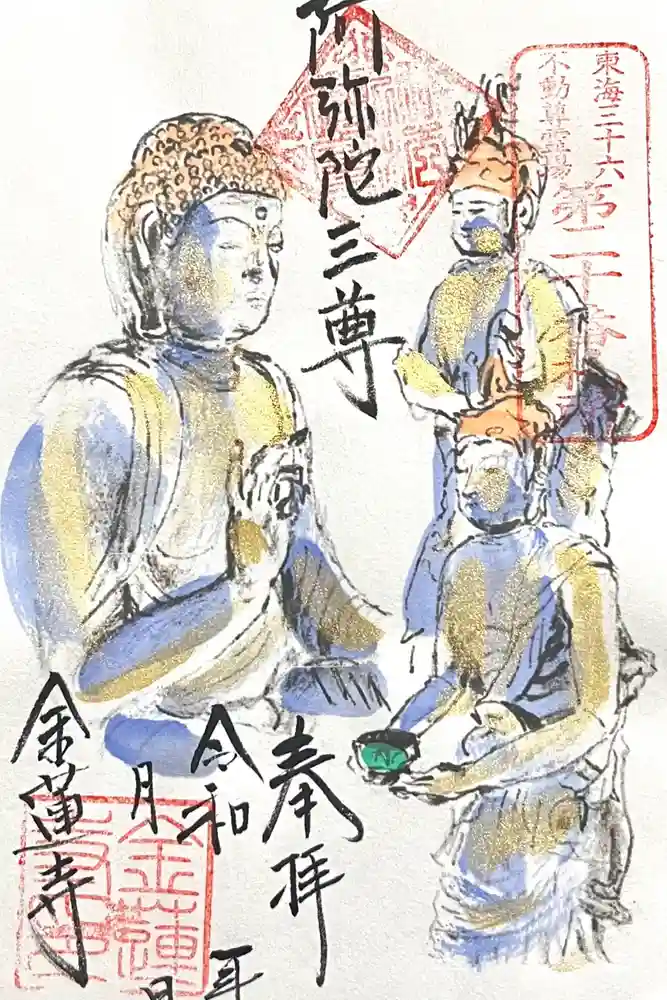 阿弥陀三尊
東海三十六
不動尊霊場
第二十番
奉拝
令和 年
月 日
金蓮寺